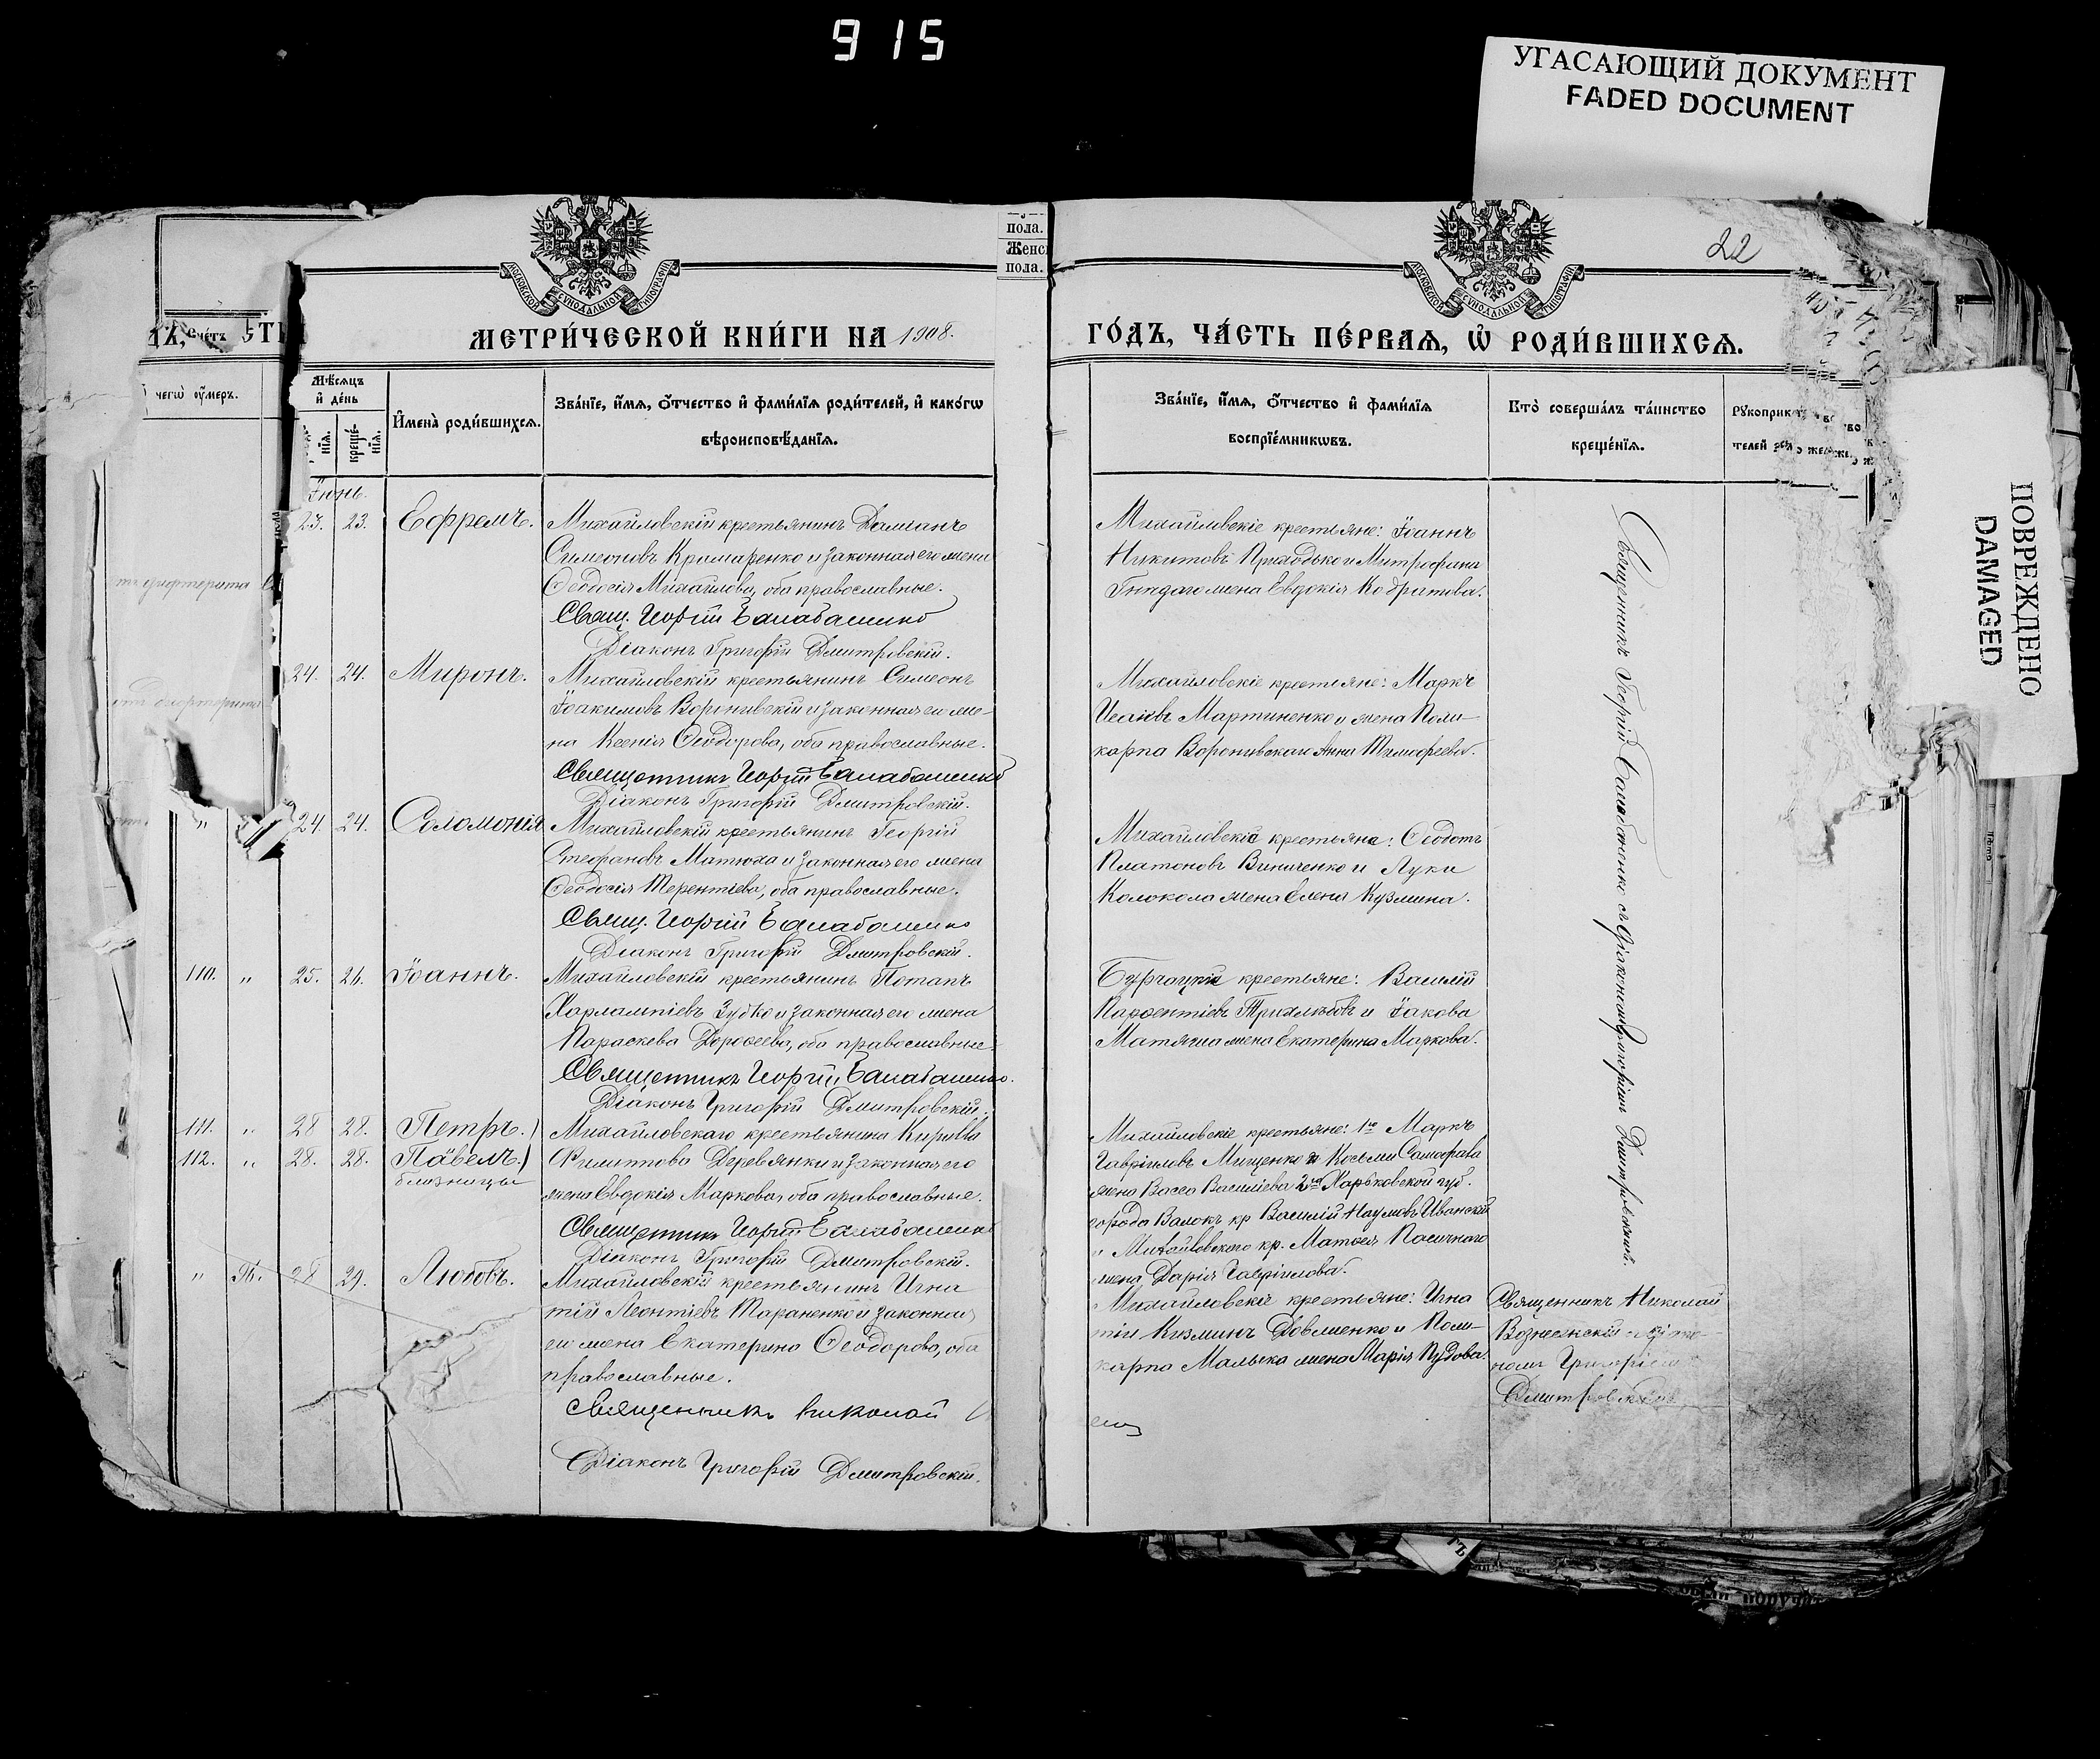 915
УГАСАЮЩИЙ ДОКУМЕНТ
FADED DOCUMENT
ПОВРЕЖДЕНО
DAMAGED
22
пола.
Женс
пола.
МОСКОВСКОЙ СѴНОДАЛЬНОЙ ТИПОГРАФІИ
МОСКОВСКОЙ СѴНОДАЛЬНОЙ ТИПОГРАФІИ
МЕТРИ́ЧЕСКОЙ КНИ́ГИ НА 1908.
ГО́ДЪ, ЧА́СТЬ ПЕ́РВАЯ, Ѽ РОДИ́ВШИХСЯ.
чегѡ оу҆́меръ.
Мѣ́сяцъ
и҆ де́нь
нїѧ.
креще́-
нїѧ.
И҆мена̀ роди́вшихсѧ.
Зва́нїе, и҆́мѧ, ѻ҆́тчество и҆ фами́лїѧ роди́телей, и҆ како́гѡ
вѣроисповѣ́данїѧ.
Зва́нїе, и҆́мѧ, ѻ҆́тчество и҆ фами́лїѧ
воспрїе́мникѡвъ.
Кто̀ соверша́лъ та́инство
креще́нїѧ.
Рꙋкоприк
телей
Іюнь.
23. 23. Ефремъ.
Михайловскій крестьянинъ Даміанъ
Симеоновъ Крамаренко и законная его жена
Ѳеодосія Михайлова, оба православные.
Свящ. Георгій Балабаненко
Діаконъ Григорій Дмитровскій.
Михайловскіе крестьяне: Іоаннъ
Никитовъ Приходько и Митрофана
Гнидаго жена Евдокія Кодратова.
24. 24. Миронъ.
Михайловскій крестьянинъ Симеонъ
Іоакимовъ Воронивскій и законная его же-
на Ксенія Ѳеодорова, оба православные.
Священникъ Георгій Балабаненко
Діаконъ Григорій Дмитровскій.
Михайловскіе крестьяне: Маркъ
Исаіевъ Мартиненко и жена Поли-
карпа Воронивскаго Анна Тимофеева.
" 24. 24. Соломонія
Михайловскій крестьянинъ Георгій
Стефановъ Матюха и законная его жена
Ѳеодосія Терентіева, оба православные.
Свящ. Георгій Балабаненко
Діаконъ Григорій Дмитровскій.
Михайловскіе крестьяне: Ѳеодотъ
Платоновъ Виниченко и Луки
Колокола жена Елена Кузмина.
110. " 25. 26. Іоаннъ.
Михайловскій крестьянинъ Потапъ
Харлампіевъ Зубко и законная его жена
Параскева Дороѳеева, оба православные.
Священникъ Георгій Балабаненко.
Діаконъ Григорій Дмитровскій.
Бурчацкіе крестьяне: Василій
Парѳентіевъ Трихлѣбовъ и Іакова
Матяша жена Екатерина Маркова.
111. " 28 28. Петръ.)
112. " 28. 28. Павелъ.)
близнецы
Михайловскаго крестьянина Кирилла
Филиппова Деревянки и законная его
жена Евдокія Маркова, оба православные.
Священникъ Георгій Балабаненко
Діаконъ Григорій Дмитровскій.
Михайловскіе крестьяне: 1го Маркъ
Гавріиловъ Мищенко и Косьмы Самофала
жена Васса Василіева 2го Харьковской губ.
города Валокъ кр Василій Наумовъ Иванскій
и Михайловскаго кр. Матѳея Пасичнаго
жена Дарія Гавріилова.
" 28 29. Любовь.
Михайловскій крестьянинъ Игна
тій Леонтіевъ Тараненко и законная
его жена Екатерина Ѳеодорова, оба
православные.
Священникъ Николай
Діаконъ Григорій Дмитровскій.
Михайловскіе крестьяне: Игна
тій Кузминъ Довженко и Поли-
карпа Малыка жена Марія Пудова.
Священникъ Георгій Балабаненко съ діакономъ Григоріемъ Дмитровскимъ.
Священникъ Николай
Вознесенскій съ діако-
номъ Григоріемъ
Дмитровскимъ